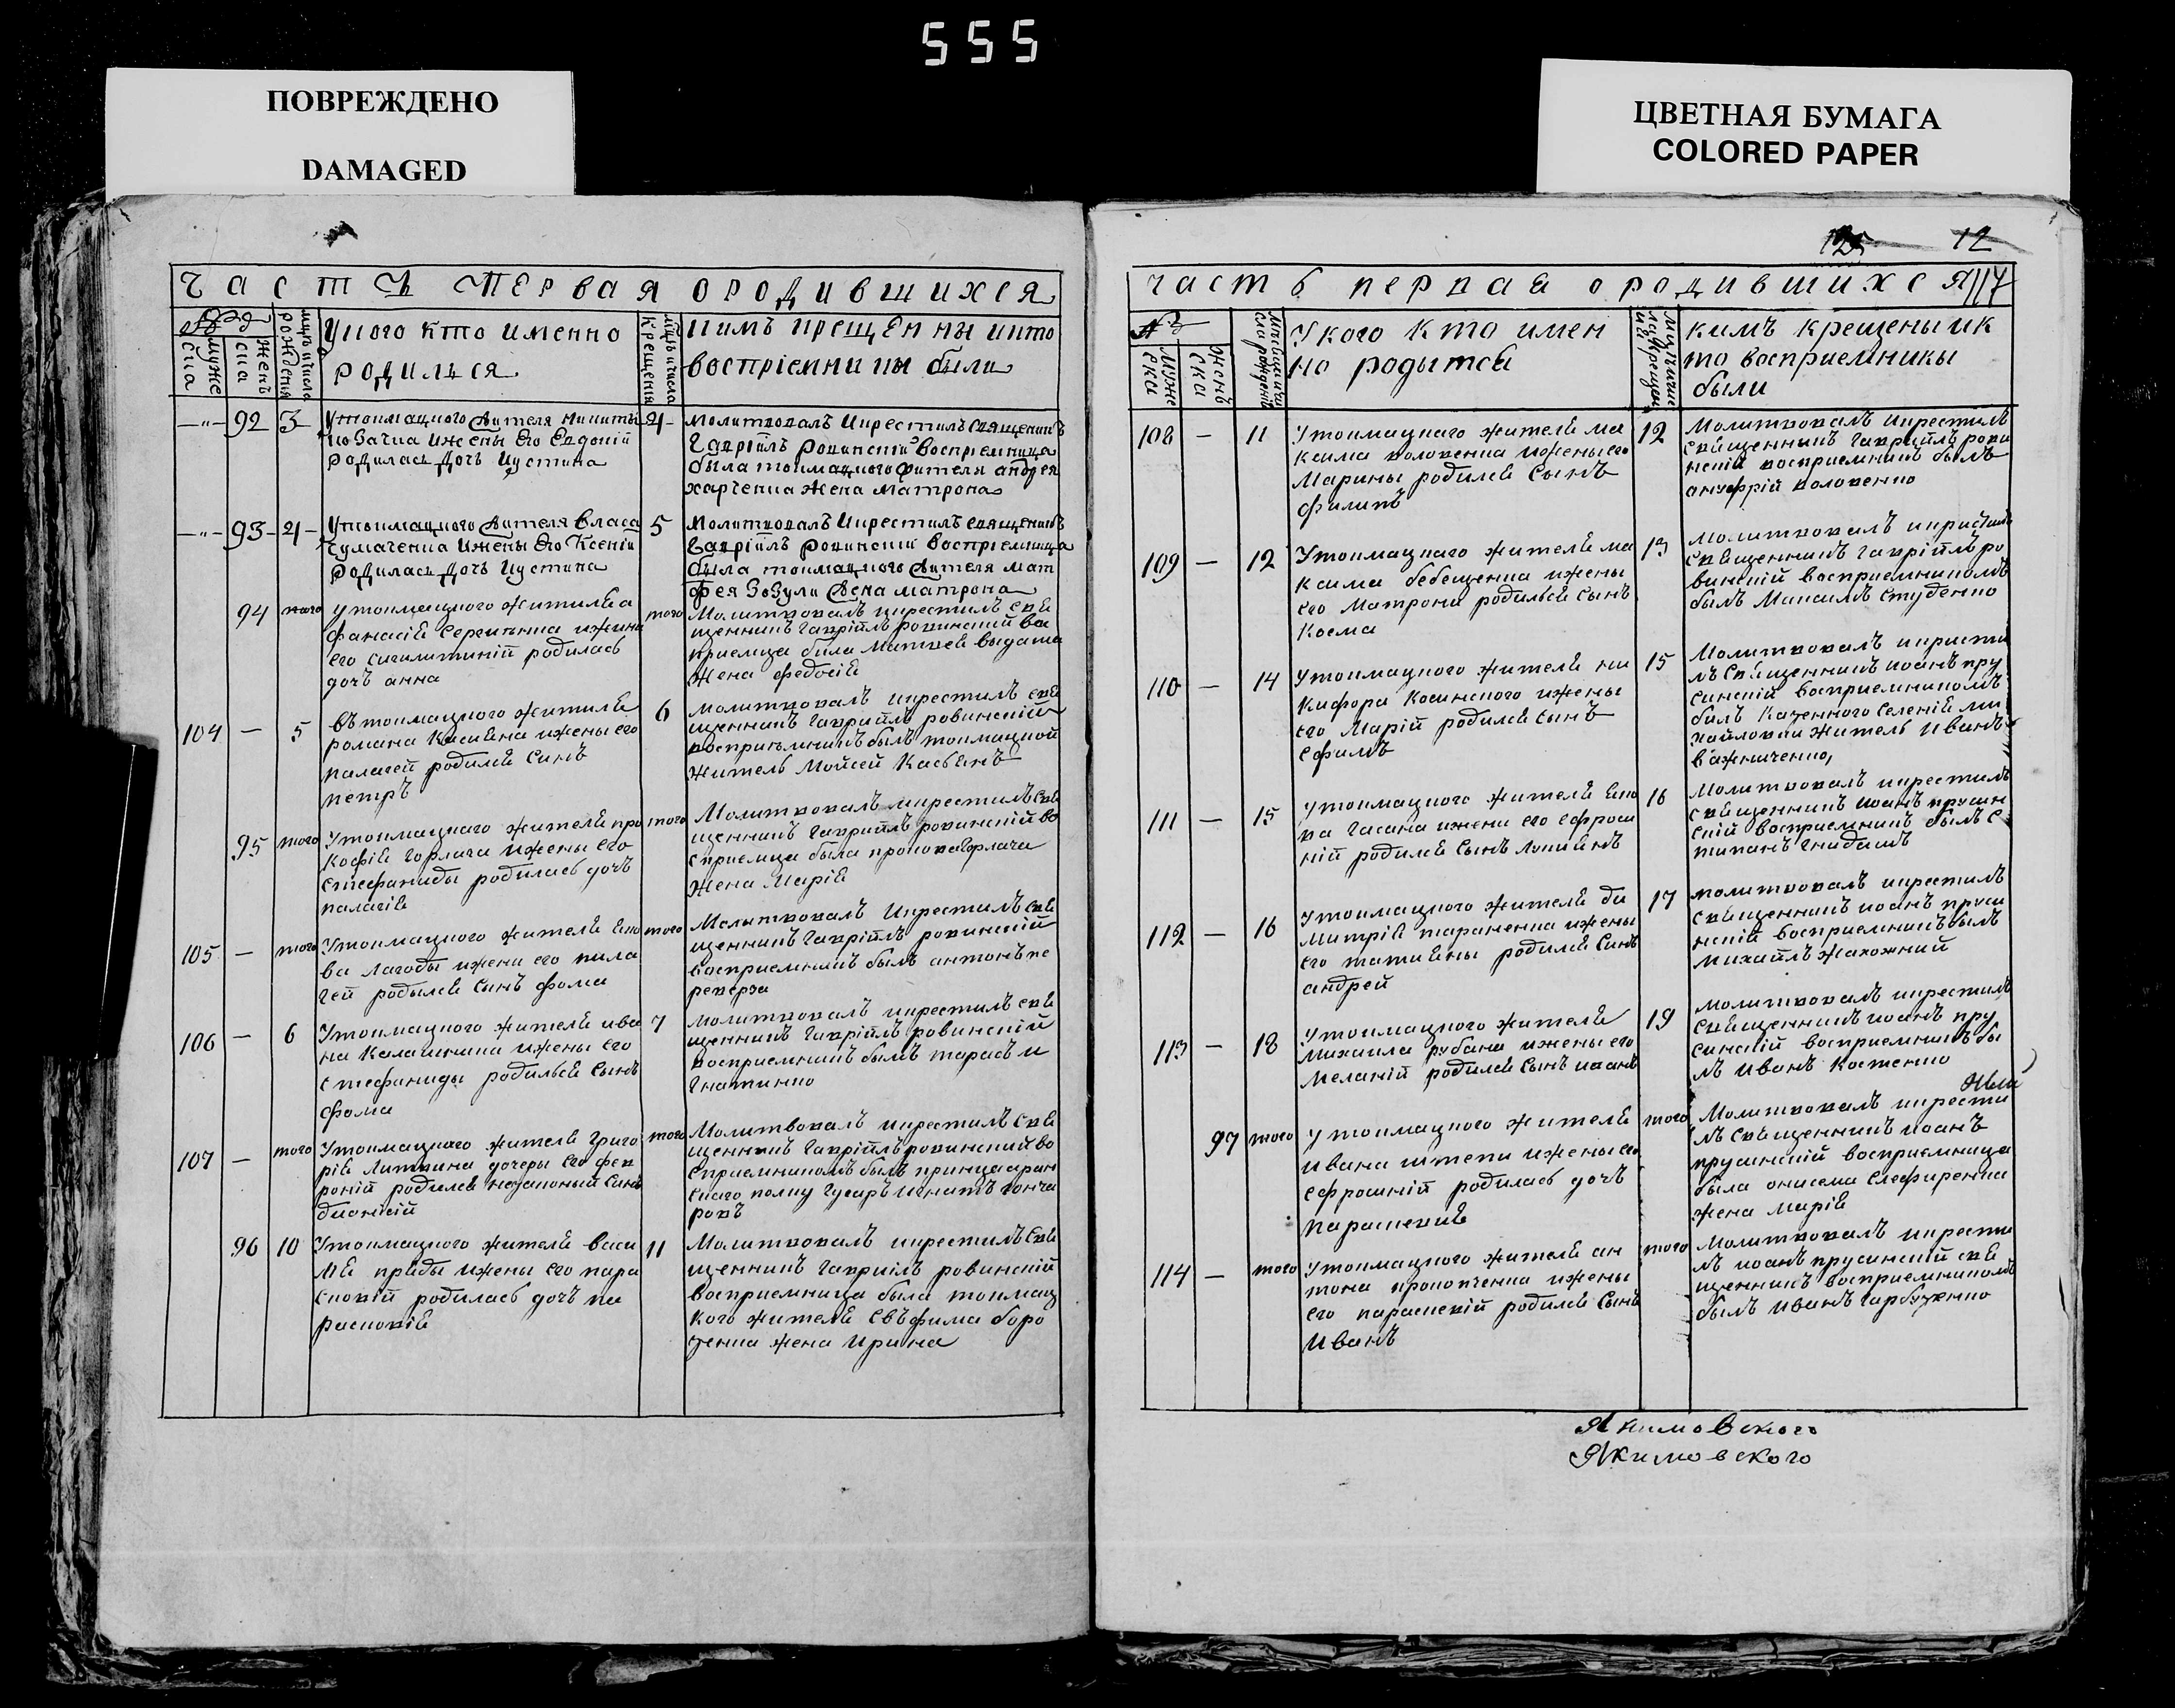 555
ПОВРЕЖДЕНО
DAMAGED
ЦВЕТНАЯ БУМАГА
COLORED PAPER
Часть Первая ородившихся
мужеска
женска
рождения
Укого кто именно
родился
Крещения
кимъ крещенны икто
восприемники были
92 3 Утокмацкого жителя Никиты
Козачка ижены его Евдокіи
родилась дочь Иустина
4
Молитвовалъ икрестилъ священникъ
Гавріилъ Ровинскій восприемница
была токмацкого жителя андрея
харченка жена матрона
93 4 Утокмацкого жителя власа
Чумаченка ижены его Ксеніи
родилась дочь Иустина
5
Молитвовалъ икрестилъ священикъ
Гавріилъ Ровинскій восприемница
была токмацкого жителя мат
фея Зозули жена матрона
94 того Утокмацкого жителя а
фанасія
его родилась
дочь анна
того
Молитвовалъ икрестилъ свя
щенникъ Гавріилъ ровинский во
приемца била
жена федосія
104 — 5 вътокмацкого жителя
романа Касяна ижены его
палагеи родился синъ
петръ
6
молитвовалъ икрестилъ свя
щенникъ Гавриилъ ровинскій
восприемникъ былъ токмацкой
житель Мойсей Касьянъ
95 того Утокмацкаго жителя про
кофія Горлача ижены его
стефаниды родилась дочь
палагія
того
Молитвовалъ икрестилъ свя
щенникъ Гавріилъ ровинскій во
сприемца была прокопа Горлача
жена Марія
105 — того Утокмацкого жителя яко
ва лагоды ижени его пила
геи родился синъ фома
того
Молытвовалъ Икрестилъ свя
щенникъ Гавріилъ ровинскій
восприемникъ былъ антонъ пе
реверза
106 — 6 Утокмацкого жителя ива
на Калашника ижены его
стефаниды родилься сынъ
фома
7
молитвовалъ икрестилъ свя
щенникъ Гавріилъ ровинскій
восприемникъ былъ тарасъ и
гнатинко
107 — того Утокмацкаго жителя григо
рія Литвина дочеры его фев
роніи родился незаконый синъ
дионисій
того
Молитвовалъ икрестилъ свя
щенникъ Гавріилъ ровинский во
сприемникомъ былъ
скаго полку Гусаръ игнатъ гонча
ровъ
96 10 Утокмацкого жителя васи
ля ижены его пара
сковіи родилась дочь па
расковія
11
Молитвовалъ икрестилъ свя
щенникъ Гавриилъ ровинскій
восприемница была токмац
кого жителя Евъфима боро
денка жена Ирина
12
часть первая ородившихся 117
№
муже
ска
жен
ска
Укого кто имен
но родытся
кимъ крещены ик
то восприемники
были
108 — 11 Утокмацкаго жителя ма
ксима коловенка ижены его
Марины родился сынъ
филипъ
12
Молитвовалъ икрестилъ
священникъ Гавріилъ рови
нскій восприемникъ былъ
онуфрій коловенко
109 — 12 Утокмацкаго жителя ма
ксима бебещенка ижены
его Матрони родилься сынъ
Косма
13
Молитвовалъ икристилъ
священникъ Гавріилъ ро
винскій восприемникомъ
былъ Михаилъ Студенко
110 — 14 Утокмацкого жителя ни
кифора Косинского ижены
его Маріи родился сынъ
ефимъ
15
Молитвовалъ икристи
лъ священникъ иоанъ пру
синскій восприемникомъ
билъ Казенного Селенія ми
хайловки житель Иванъ
важниченко,
111 — 15 Утокмацкого жителя яко
ва Гасана ижени его ефроси
ніи родился сынъ лукиянъ
16
Молитвовалъ икрестилъ
священникъ иоанъ прусин
скій восприемникъ былъ с
типанъ гнидашъ
112 — 16 Утокмацкого жителя ди
митрія тараненка ижены
его татияны родился синъ
андрей
17
молитвовалъ икрестилъ
священникъ иоанъ пруси
нскій восприемникъ былъ
михаилъ
113 — 18 Утокмацкого жителя
михаила рубана ижены его
меланіи родился сынъ иоанъ
19
молитвовалъ икрестилъ
священникъ иоанъ пру
синскій восприемникъ бы
лъ иванъ костенко
97 того Утокмацкого жителя
ивана штепи ижены его
ефросиніи родилась дочь
парасковія
того
Молитвовалъ икрести
лъ священникъ иоанъ
прусинскій восприемница
была
жена марія
114 — того Утокмацкого жителя ан
тона прокопченка ижены
его параскевіи родился сынъ
Иванъ
того
Молитвовалъ икрести
лъ иоанъ прусинскій свя
щенникъ восприемникомъ
былъ иванъ Гарбузенко
Якимовского
Якимовского